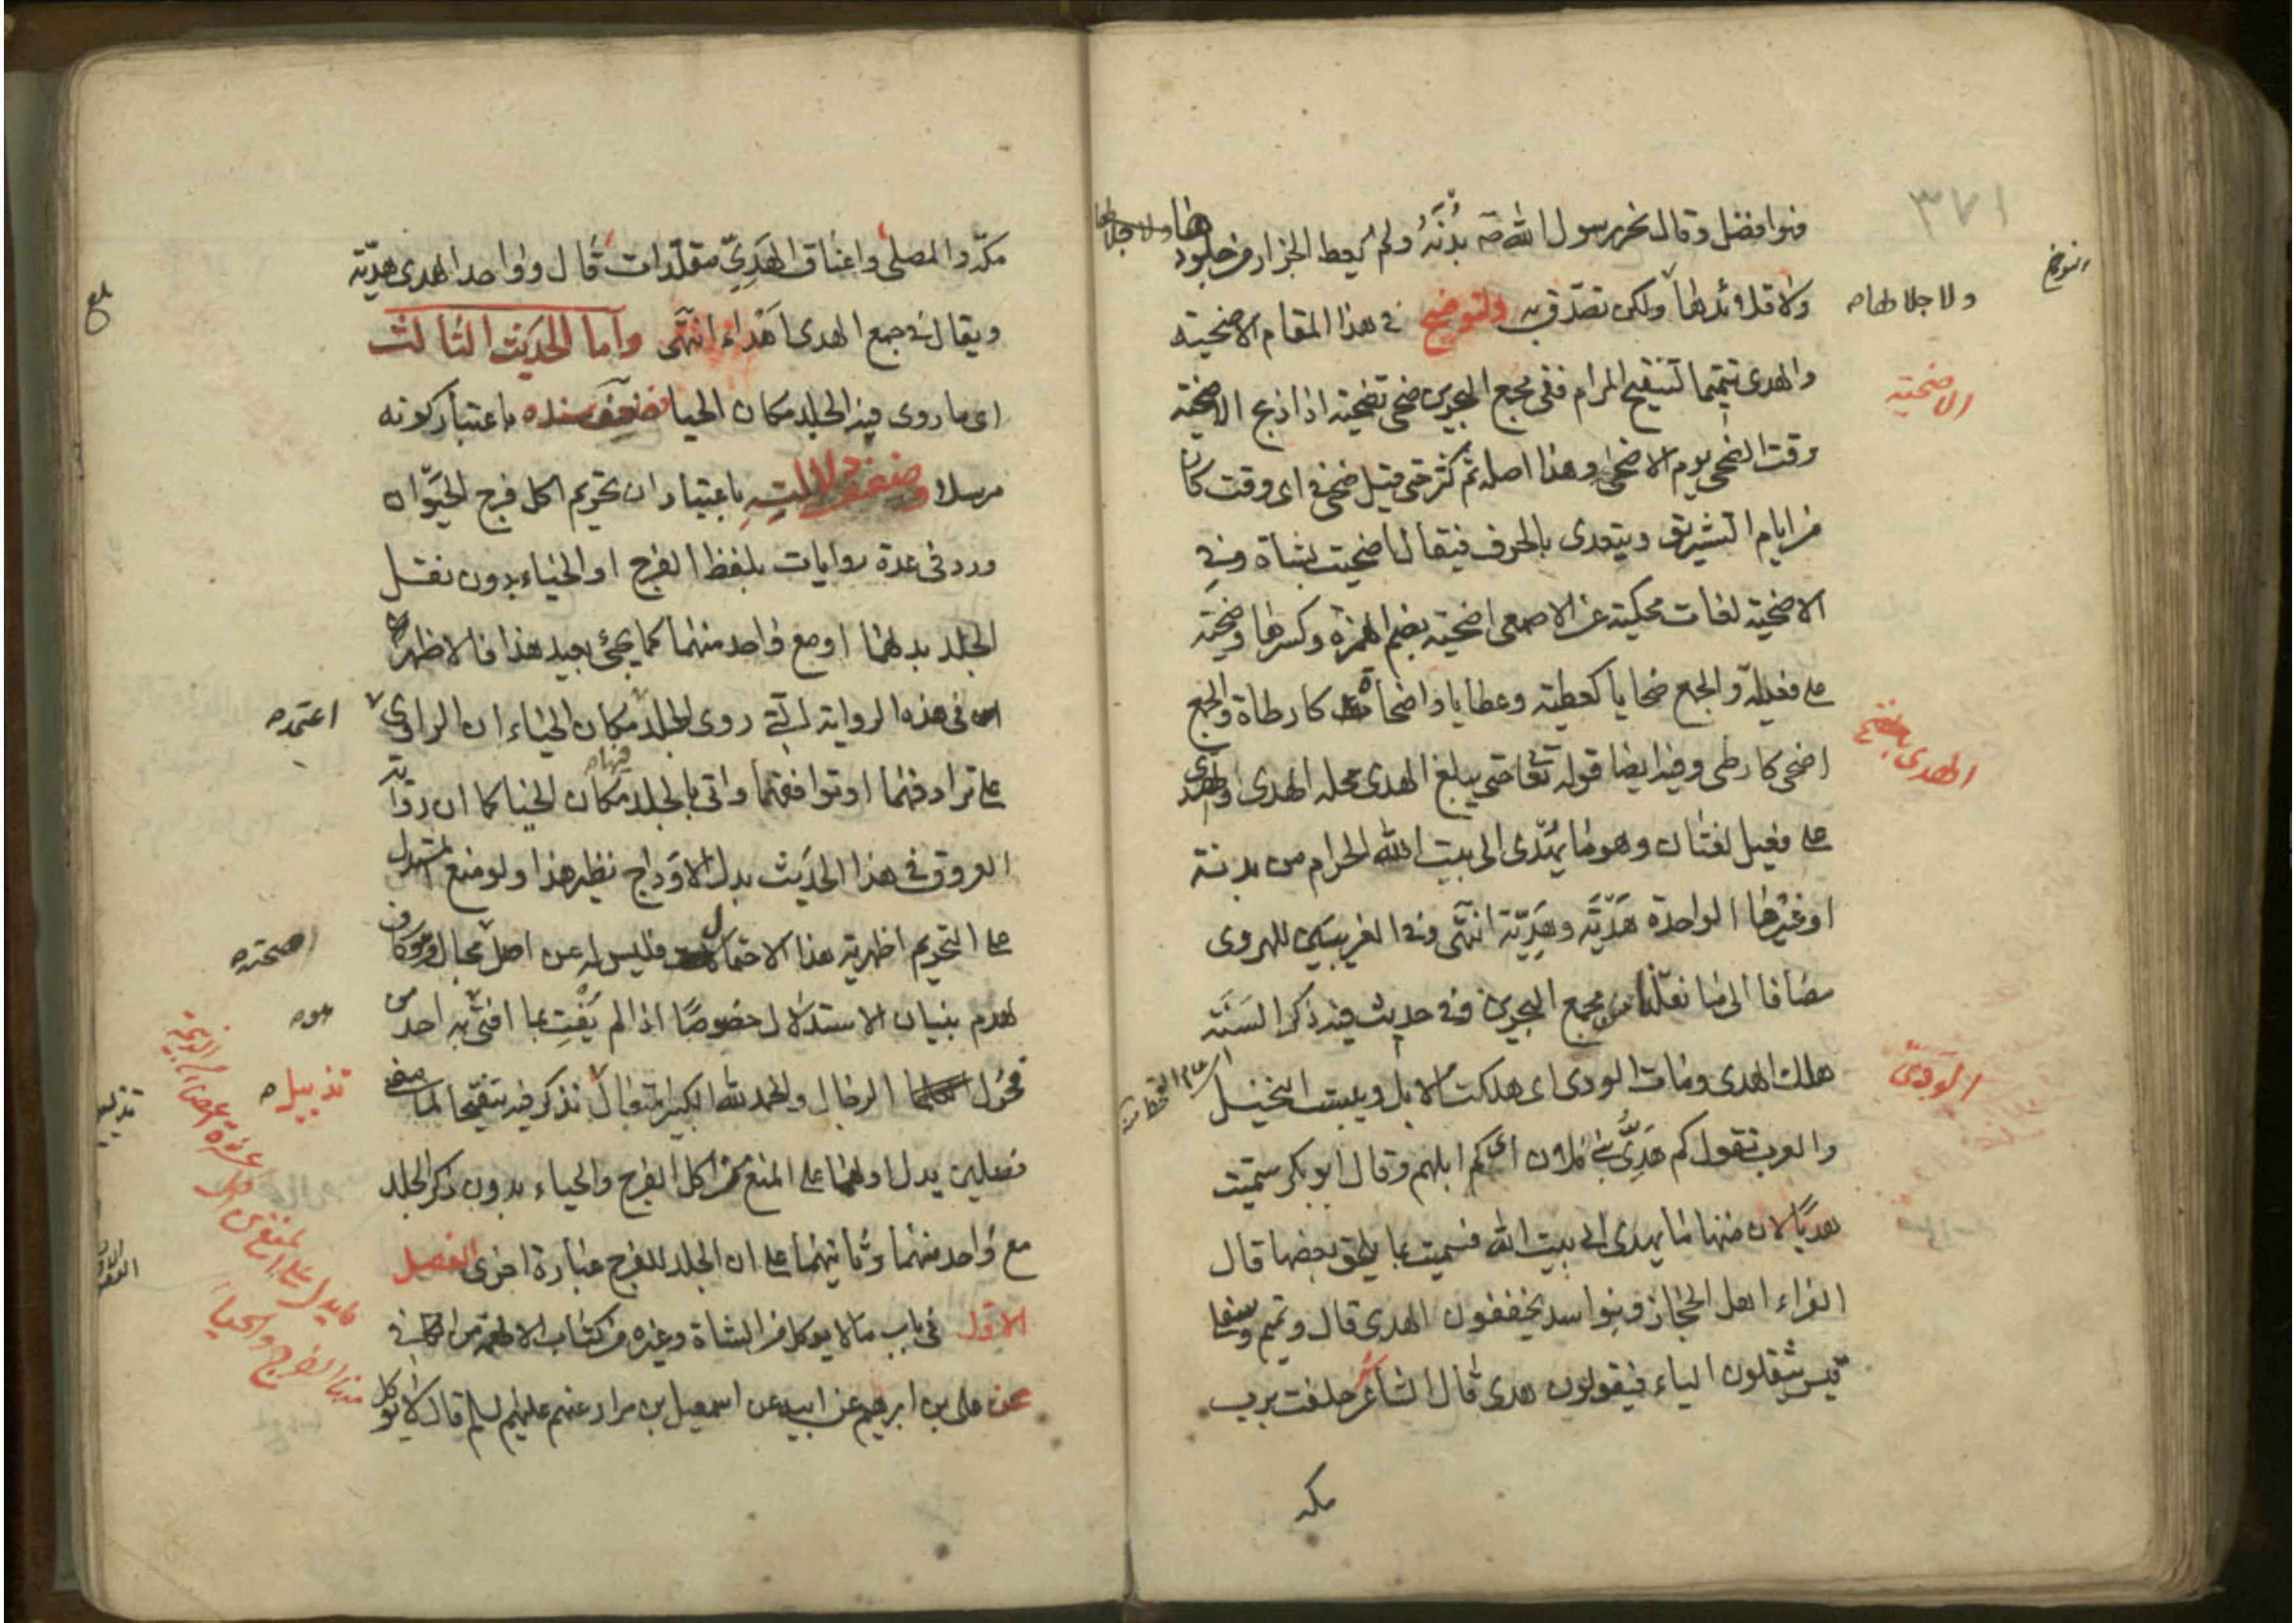 ٣٧١
فهو افضل وقال نحر رسول الله صه بُدُنَهُ ولم يعط الجزار من جلودها
ولا قلائدها ولكن تصدق به ولنوضح في هذا المقام الاضحيته
ولا جلالها صه
التوضيح
والهدى تتميما لتنقيح المرام ففى مجمع البحرين ضحى تضحيته اذا ذبح الاضحيته
الاضحيته
وقت الضحى يوم الاضحى وهذا اصله ثم كثر حتى قيل ضحى فى اى وقت كان
من ايام التشريق ويتعدى بالحرف فيقال ضحيت بشاة وفي
الاضحيته لغات محكيته عن الاصمعى اضحيته بضم الهمزة وكسرها وضحيته
على فعيلة والجمع ضحايا كعطيته وعطايا واضحاة كارطاة والجمع
اضحى كارطى وفيه ايضا قوله تعا حتى يبلغ الهدى محله الهدى والهدى
الهدى
على فعيل لغتان وهو ما يهدى الى بيت الله الحرام من بدنة
او غيرها الواحدة هَدْيَة وهَدِيّة انتهى وفى الغريبين للهروى
مضافا الى ما نقلنا من مجمع البحرين وفى حديث فيه ذكر السَنَة
هلك الهدى ومات الودى اى هلكت الابل ويبست النخيل
الودىّ
والعرب تقول كم هَدِىُّ بنى فلان اى كم ابلهم وقال ابو بكر سمّيت
هديًّا لان منها ما يهدى الى بيت الله فسميت بما يلحق بعضها قال
الفراء اهل الحجاز وبنوا اسد يخففون الهدى قال وتميم وسفلى
قيس يثقلون الياء فيقولون هدى قال الشاعر حلفت برب
مكه
مكّه والمصلى واعناق الهَدِىّ مقلّدات قال وواحد الهدى هديّة
ويقال فى جمع الهدى اَهْداء انتهى واما الحديث الثالث
اى ما روى فيه الجلد مكان الحيا فضعف سنده باعتبار كونه
مرسلا وضعف دلالته باعتبار ان تحريم اكل فرج الحيوان
ورد فى عدة روايات بلفظ الفرج او الحياء بدون نقل
الجلد بدلهما او مع واحد منهما كما يجئ بعيد هذا فالاظهر
فى هذه الرواية التى روى الجلد مكان الحياء ان الراوى
اعتمد صه
على ترادفهما او توافقهما واتى بالجلد مكان الحيا كما ان رواية
العروق فى هذا الحديث بدل الاوداج نظير هذا ولو منع المستدل
على التحريم اظهرية هذا الاحتمال فليس له عن اصل مجال وهو كاف
صحته صه
لهدم بنيان الاستدلال خصوصًا اذا لم يُفْتِ بما افتى به احد من
هو صه
فحول الرجال والحمد لله الكبير المتعال نذكر فيه تنقيحا لما مضى
تذييل صه
تذييل
فصلين يدل اولهما على المنع من اكل الفرج والحياء بدون ذكر الجلد
مع واحد منهما وثانيهما على ان الجلد للفرج عبارة اخرى الفصل
الاول فى باب ما لا يوكل من الشاة وغيره من كتاب الاطعمة من الكافى
عن على بن ابرهيم عن ابيه عن اسمعيل بن مرار عنهم عليهم السلم قال لا يوكل
ما يدل على المنع من اكل عشرة اعضاء من الذبيحة
منها الفرج والحياء